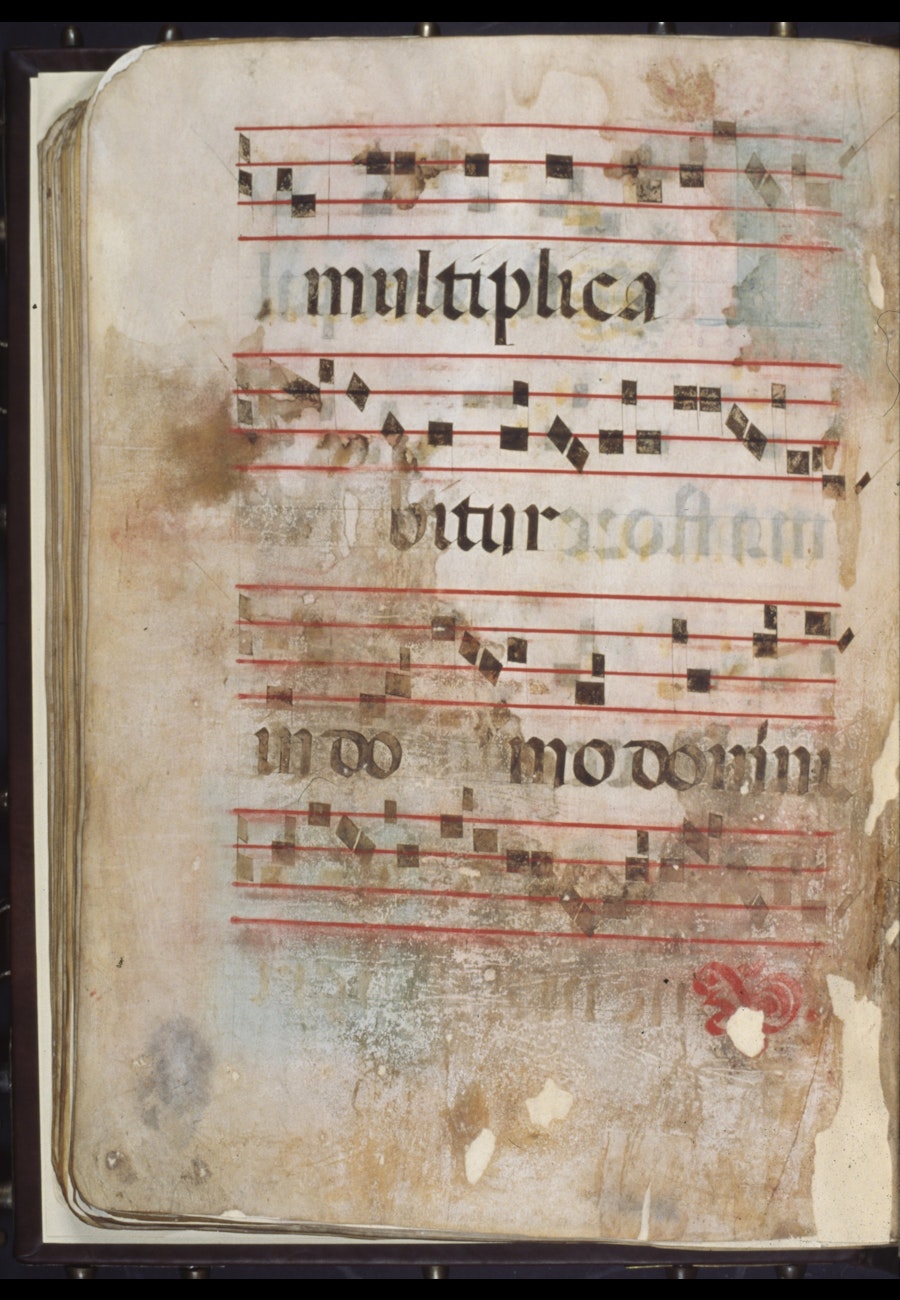 multiplica
bitur
in do mo domini